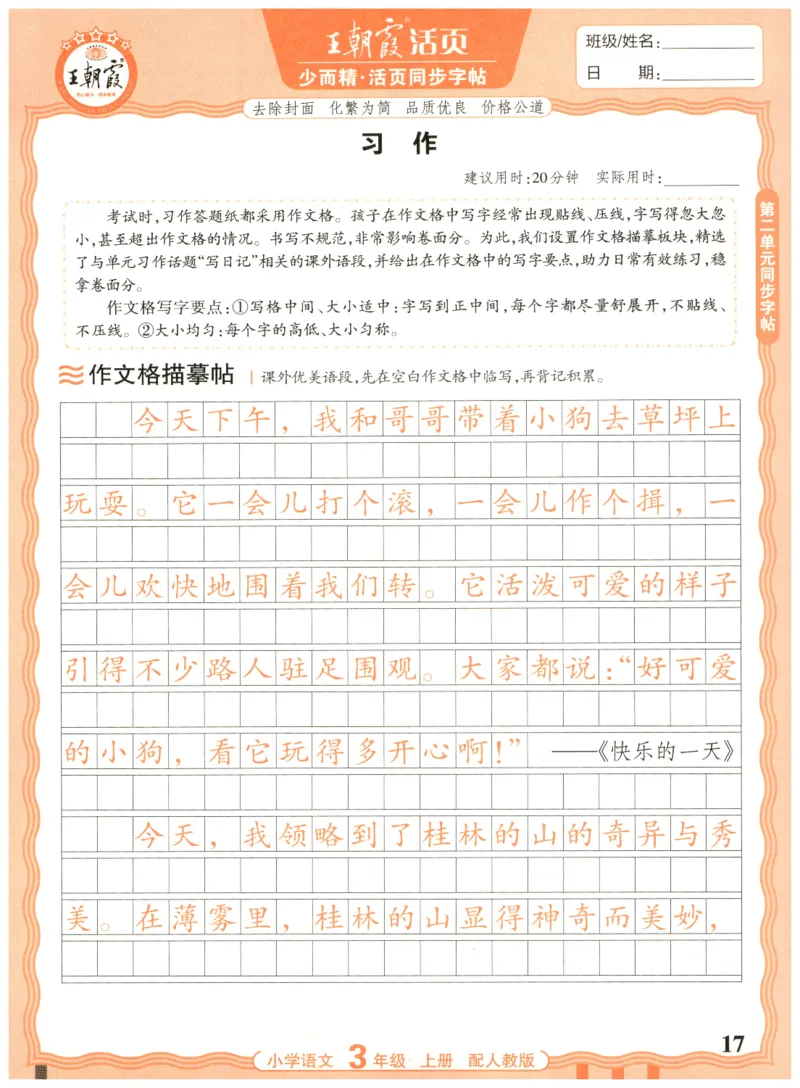 王朝霞
王朝霞®活页
少而精·活页同步字帖
班级/姓名：
日 期：
去除封面 化繁为简 品质优良 价格公道
习 作
建议用时：20分钟 实际用时：
考试时，习作答题纸都采用作文格。孩子在作文格中写字经常出现贴线、压线，字写得忽大忽
小，甚至超出作文格的情况。书写不规范，非常影响卷面分。为此，我们设置作文格描摹板块，精选
了与单元习作话题“写日记”相关的课外语段，并给出在作文格中的写字要点，助力日常有效练习，稳
拿卷面分。
作文格写字要点：①写格中间、大小适中：字写到正中间，每个字都尽量舒展开，不贴线、
不压线。②大小均匀：每个字的高低、大小匀称。
第二单元同步字帖
作文格描摹帖 | 课外优美语段，先在空白作文格中临写，再背记积累。
今天下午，我和哥哥带着小狗去草坪上
玩耍。它一会儿打个滚，一会儿作个揖，一
会儿欢快地围着我们转。它活泼可爱的样子
引得不少路人驻足围观。大家都说：“好可爱
的小狗，看它玩得多开心啊！” ——《快乐的一天》
今天，我领略到了桂林的山的奇异与秀
美。在薄雾里，桂林的山显得神奇而美妙，
17
小学语文 3年级 上册 配人教版